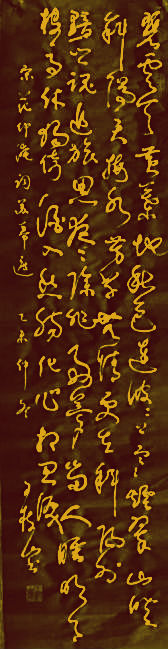 碧雲天黃葉地秋色連波〻上寒煙翠山映
斜陽天接水芳草無情更在斜陽外
黯鄉魂追旅思夜〻除非好夢留人睡明月
樓高休獨倚酒入愁腸化作相思淚
宋范仲淹詞蘇幕遮 乙未仲冬